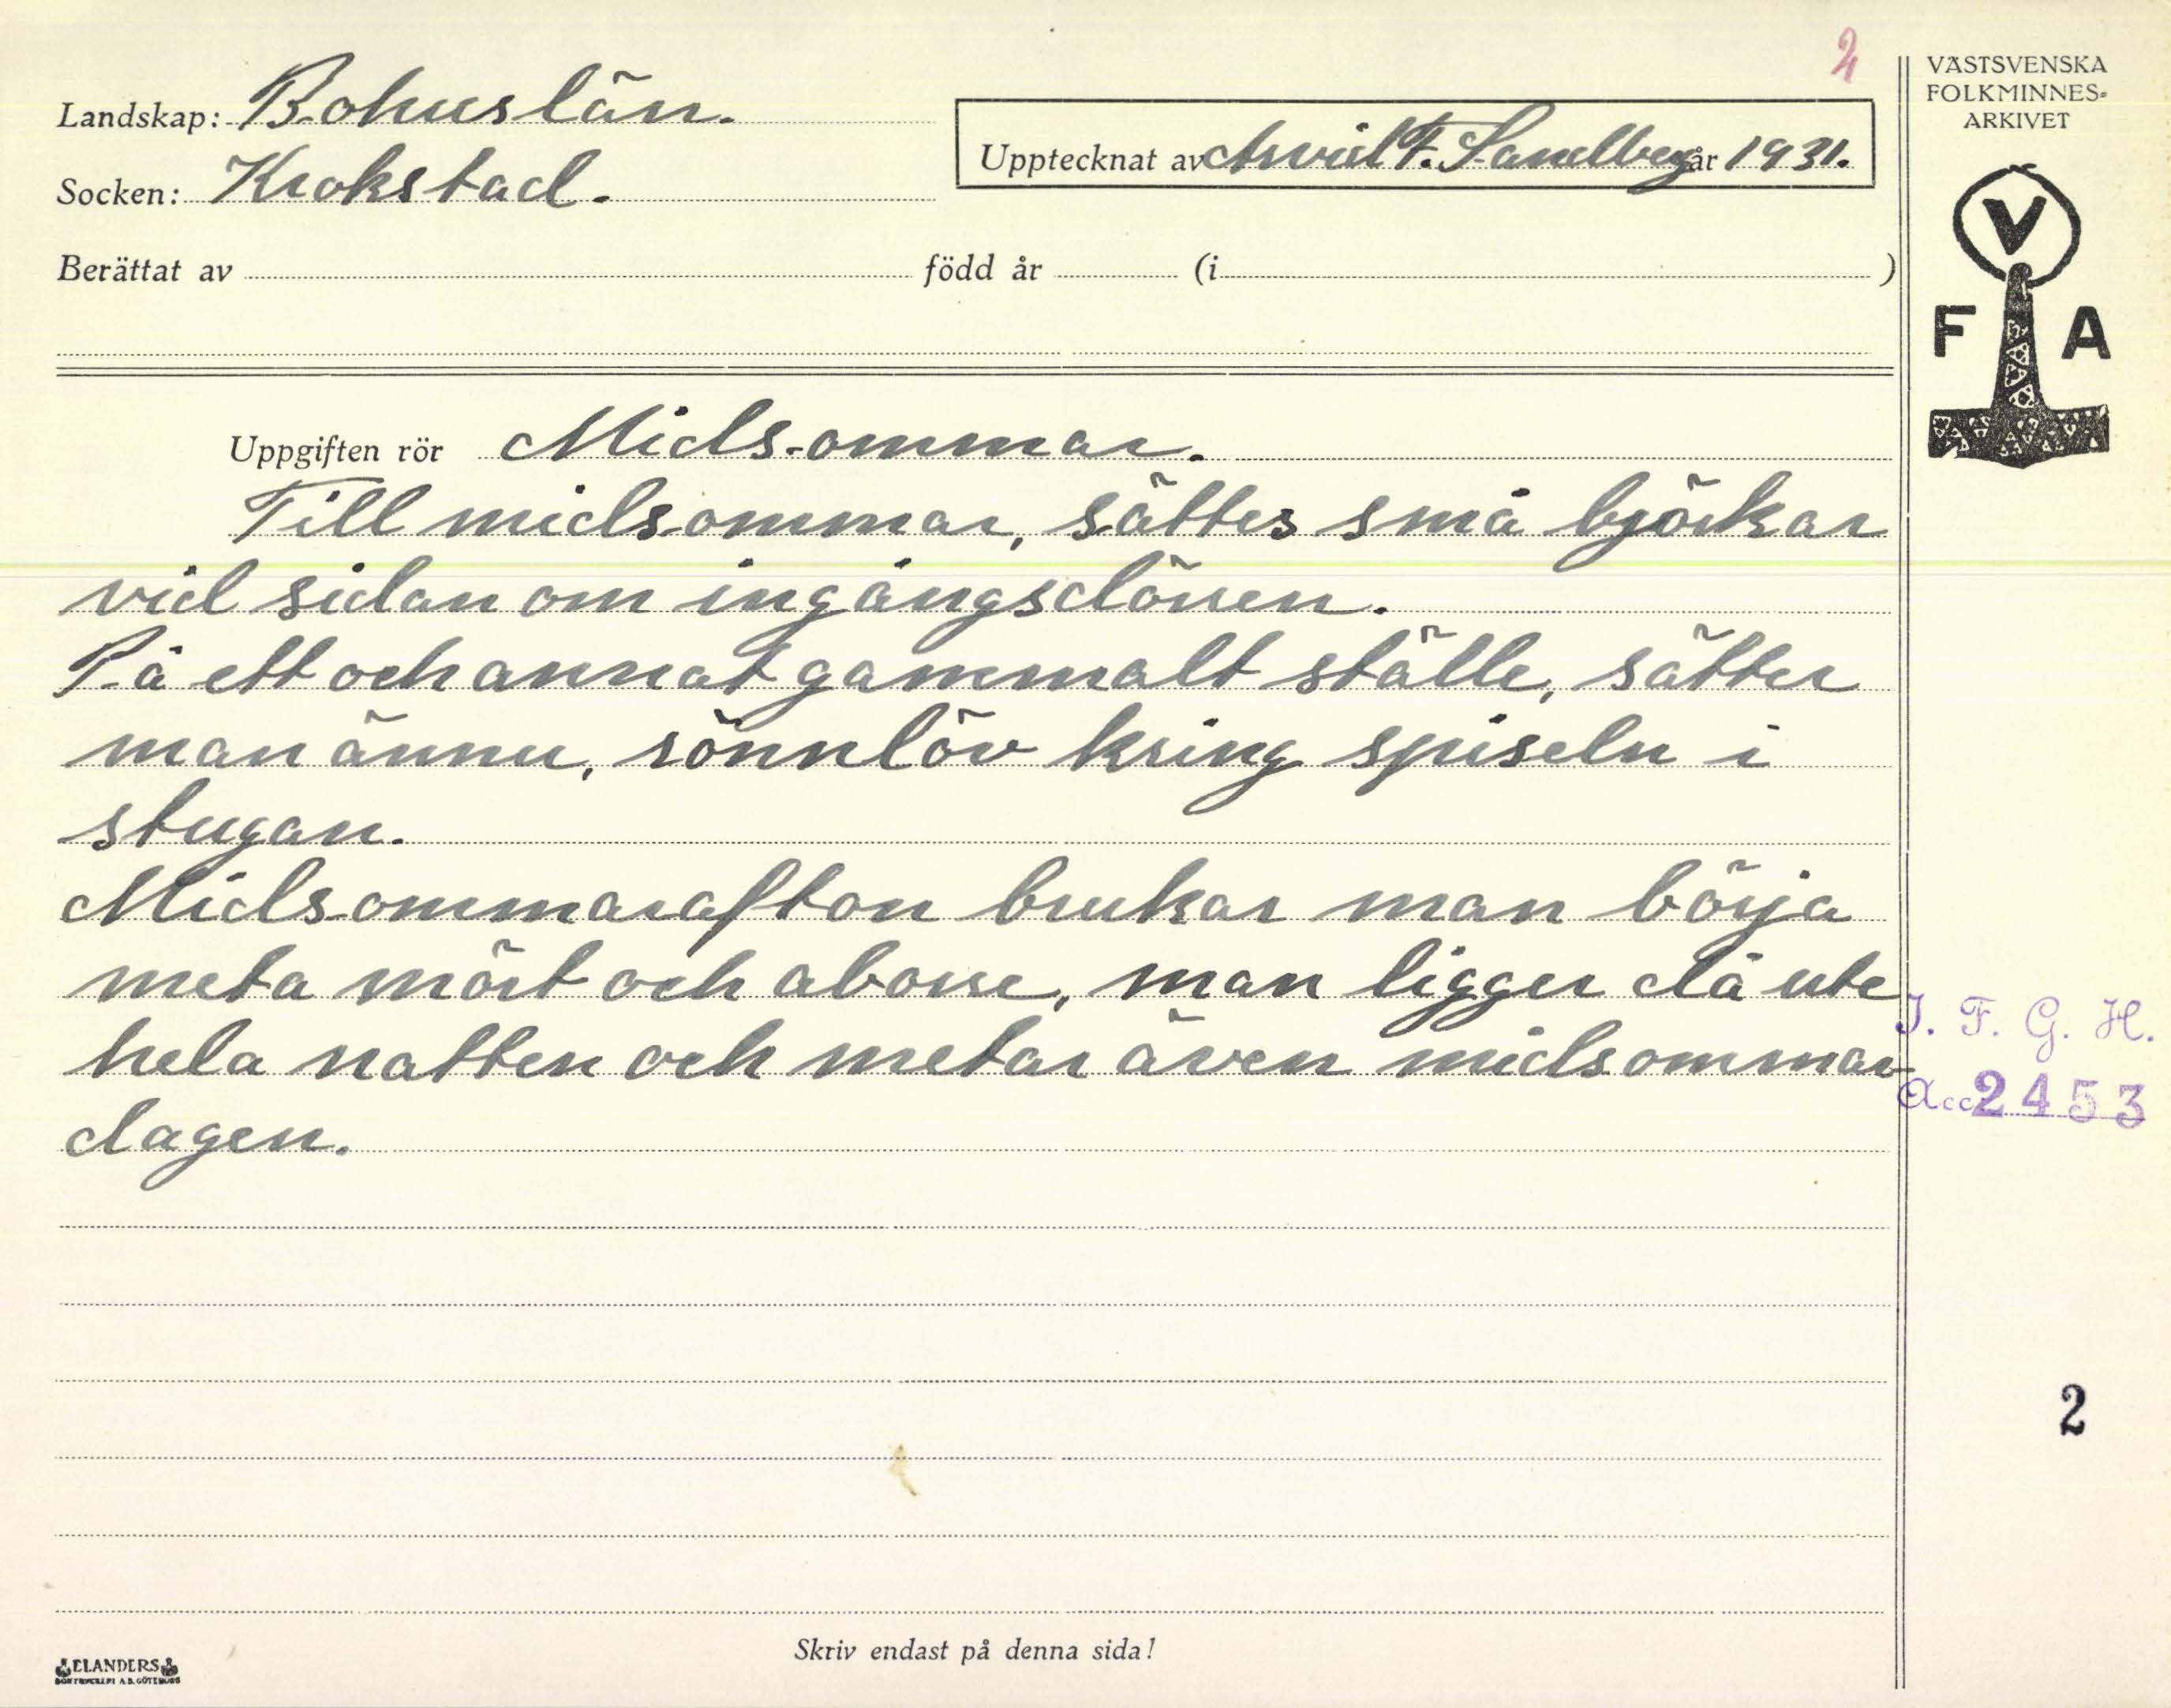 2
VÄSTSVENSKA
FOLKMINNES=
ARKIVET
Landskap: Bohuslän.
Upptecknat av Arvid F. Sandberg år 1931.
Socken: Krokstad.
Berättat av född år (i )
V
F A
Uppgiften rör Midsommar.
Till midsommar, sättes små björkar
vid sidan om ingångsdörren.
På ett och annat gammalt ställe, sätter
man ännu, rönnlöv kring spiseln i
stugan.
Midsommarafton brukar man börja
meta mört och aborre, man ligger då ute
hela natten och metar även midsommar-
dagen.
I. F. G. H.
Acc 2453
2
Skriv endast på denna sida!
ELANDERS
BOKTRYCKERI A.B. GÖTEBORG